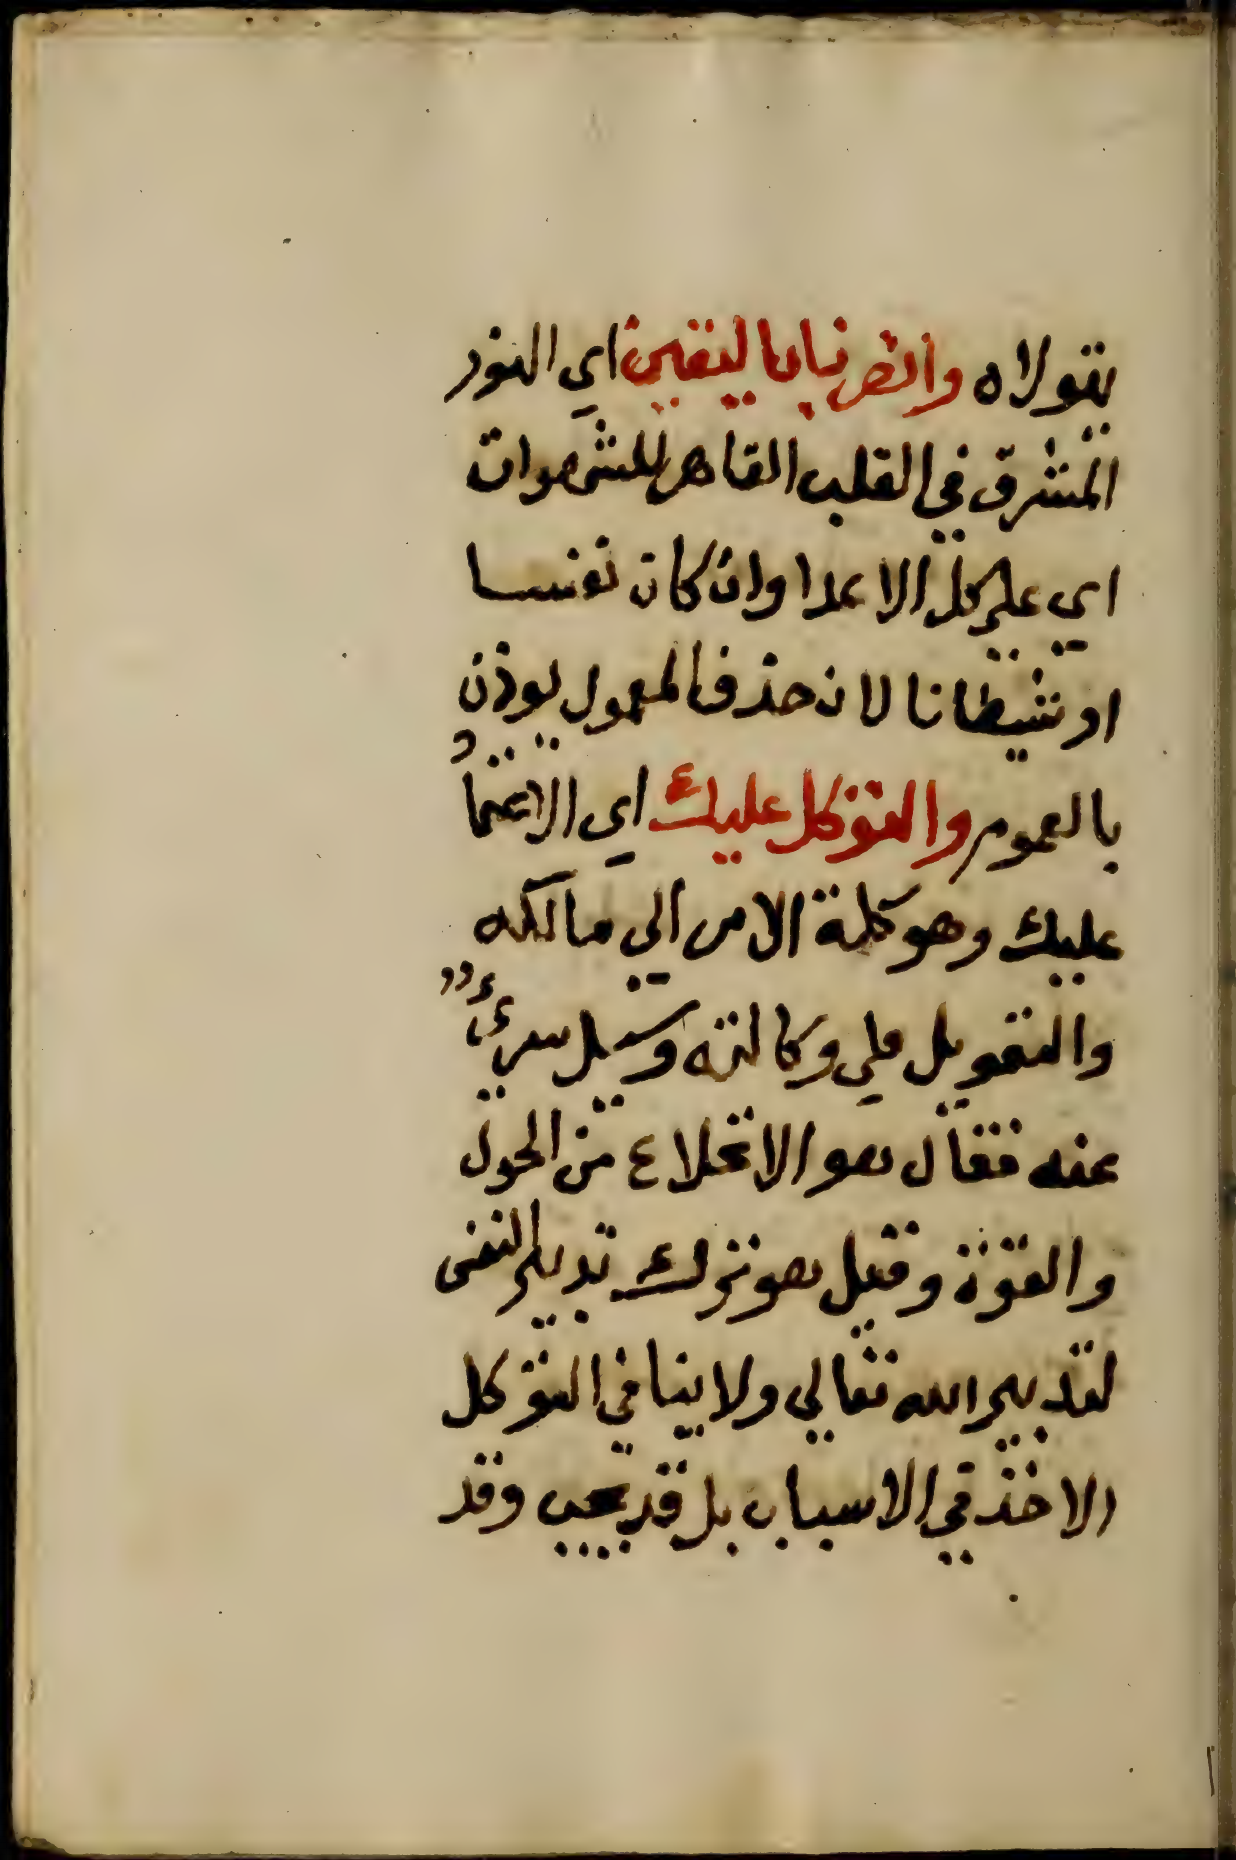 يتولاه وانصرنا باليقين اي النور
المشرق في القلب القاهر للشهوات
اي علي كل الاعدا وان كان نفسا
او شيطانا لان حذف المعمول يوذن
بالعموم والتوكل عليك اي الاعتماد
عليك وهو كلة الامر الي مالكه
والتعويل علي وكالته وسيل سري
عنه فقال هو الانخلاع من الحول
والقوة وقيل هو ترك تدبير النفس
لتدبير الله تعالي ولا ينافي التوكل
الاخذ في الاسباب بل قد يجب وقد